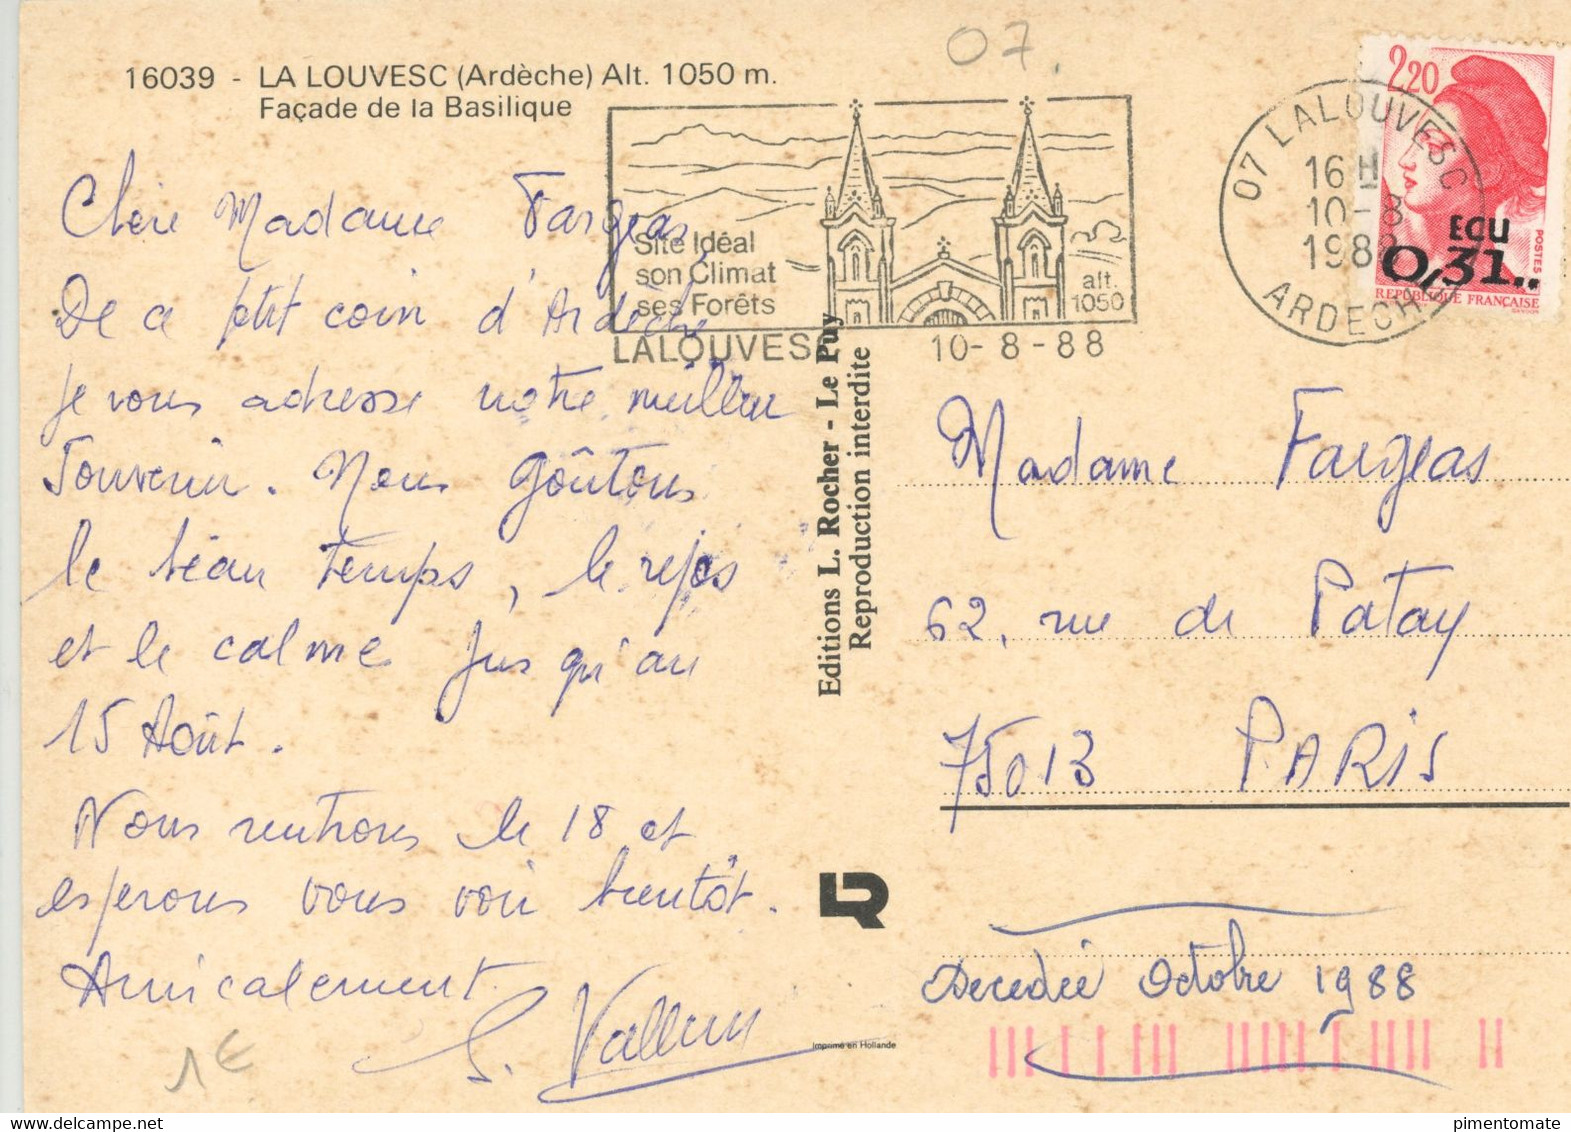 07.
16039 - LA LOUVESC (Ardèche) Alt. 1050 m.
Façade de la Basilique
Site Idéal
son Climat
ses Forêts
alt.
1050
LALOUVESC 10-8-88
07 LALOUVESC
16 H
10-8
1988
ARDECHE
2,20
ECU
0,31..
POSTES
REPUBLIQUE FRANÇAISE
GANDON
Chère Madame Fargeas,
De ce ptit coin d'Ardèche
je vous adresse notre meilleur
souvenir. Nous goûtons
le béau temps, le repos
et le calme jusqu'au
15 Août.
Nous rentrons le 18 et
esperons vous voir bientôt.
Amicalement
1€
Editions L. Rocher - Le Puy
Reproduction interdite
LR
Imprimé en Hollande
Madame Fargeas
62, rue de Patay
75013 PARIS
Decedée Octobre 1988
pimentomate